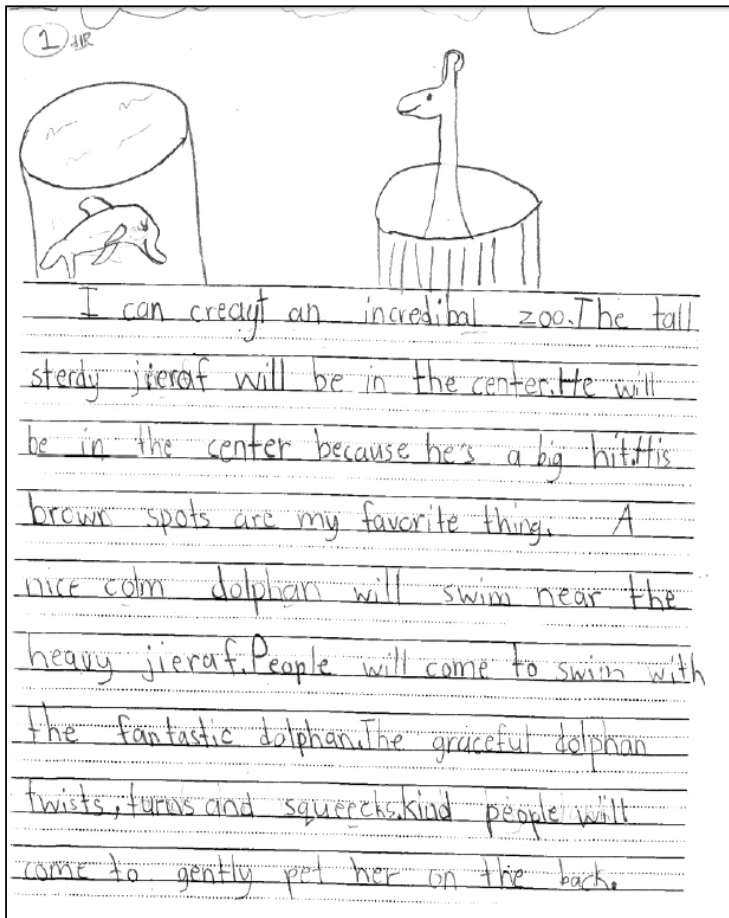 1
I can creayt an incredibal zoo. The tall
sterdy jieraf will be in the center. He will
be in the center because he's a big hit. His
brown spots are my favorite thing. A
nice colm dolphan will swim near the
heavy jieraf. People will come to swim with
the fantastic dolphan. The graceful dolphan
twists, turns and squeecks. Kind people will
come to gently pet her on the back.